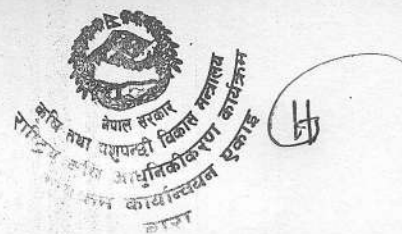 नेपाल सरकार
कृषि तथा पशुपन्छी विकास मन्त्रालय
राष्ट्रिय कृषि आधुनिकीकरण कार्यक्रम
कार्यान्वयन एकाइ
बारा